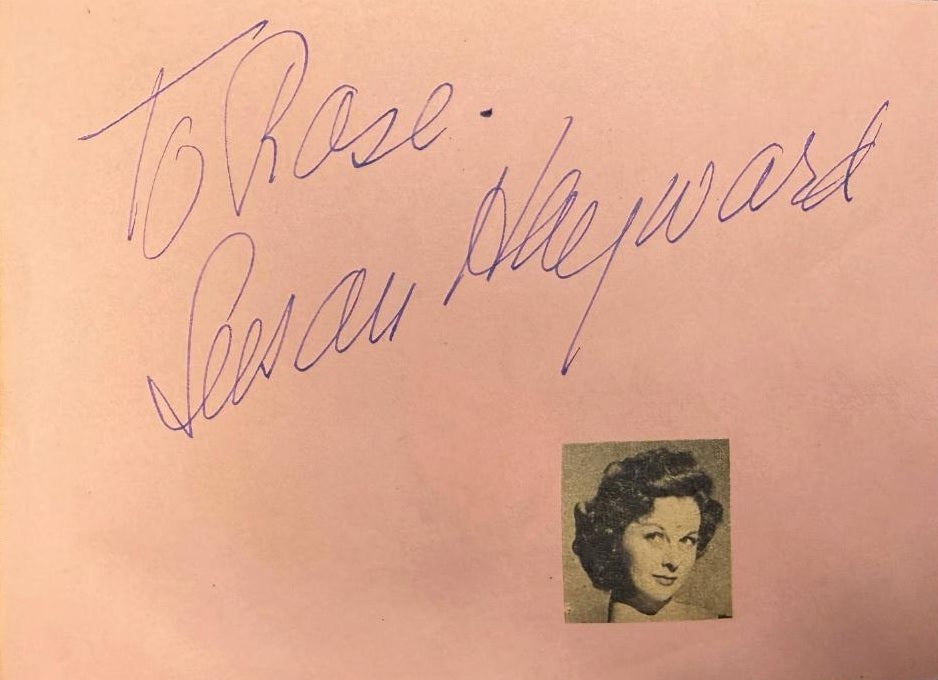 To Rose.
Susan Hayward